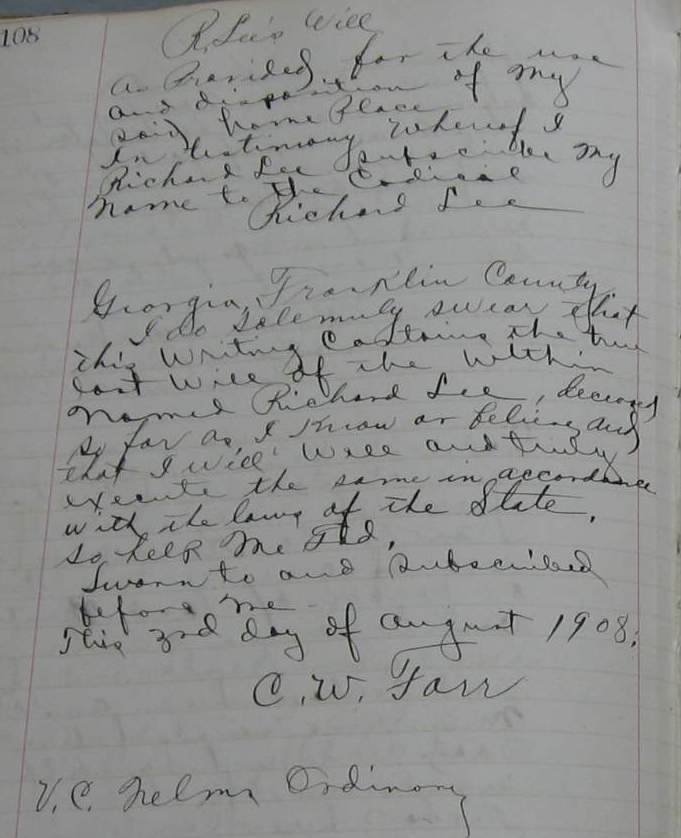 108
R. Lee's Will
as Provided for the use
and disposition of My
said home Place
In testimony Whereof I
Richard Lee subscribe My
Name to the Codicil
Richard Lee
Georgia, Franklin County
I do Solemnly swear that
this Writing Contains the true
last Will of the Within
Named Richard Lee, deceased
so far as I Know or believe and
that I will Well and truly
execute the same in accordance
with the laws of the State,
so help Me God.
Sworn to and subscribed
before Me
This 3rd day of august 1908.
C. W. Farr
Ordinary